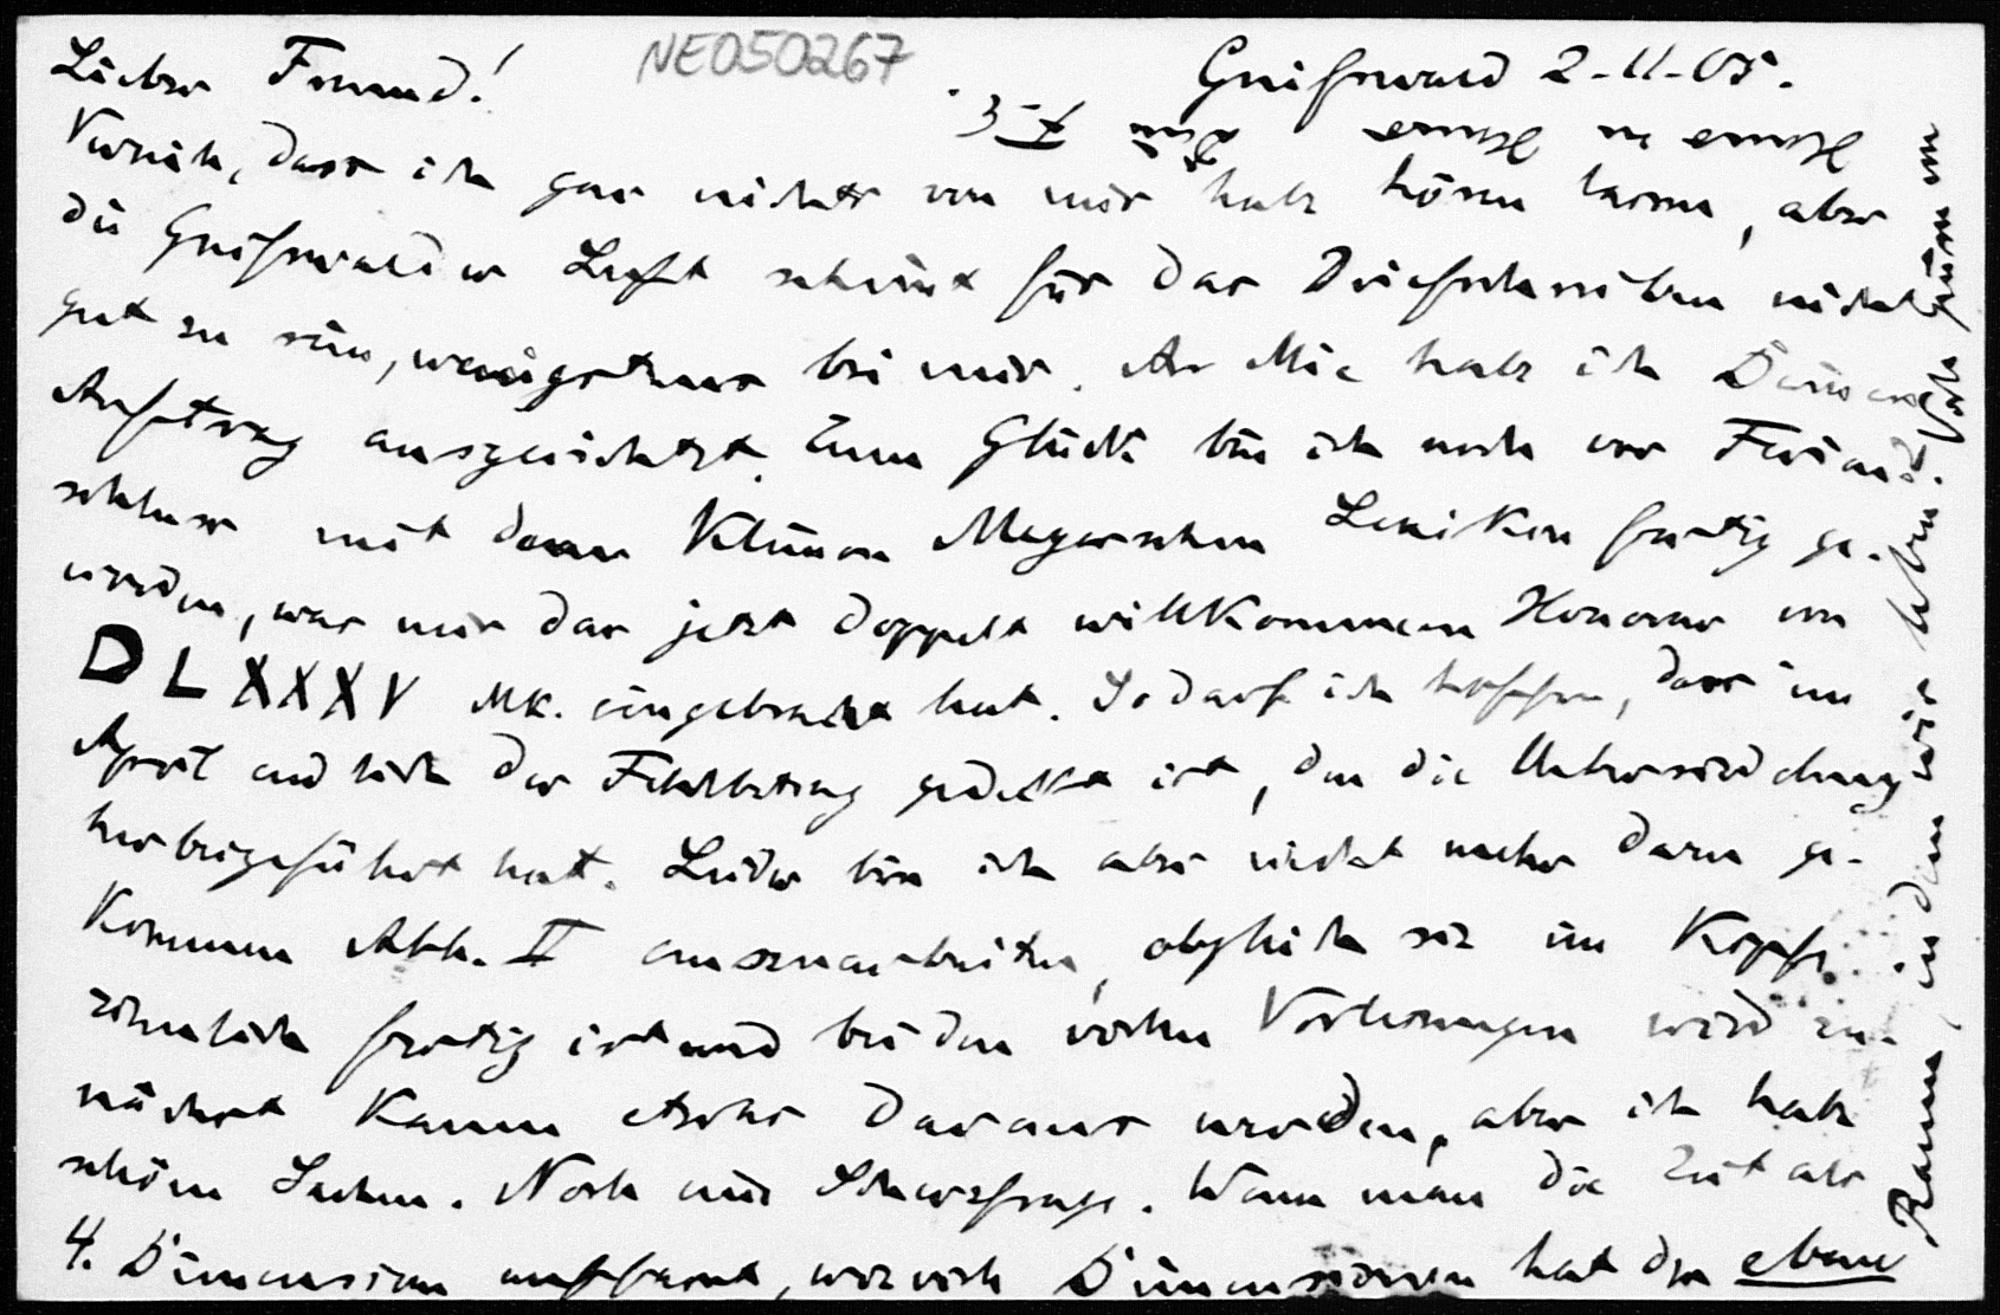 NE050267
Greifswald 2-11-05.
Lieber Freund!
Verzeih, dass ich gar nichts von mir habe hören lassen, aber
die Greifswalder Luft scheint für das Briefschreiben nicht
gut zu sein, wenigstens bei mir. An Mie habe ich Deinen
Auftrag ausgerichtet. Zum Glück bin ich noch vor Ferien-
schluss mit dem kleinen Meyerschen Lexikon fertig ge-
worden, was mir das jetzt doppelt willkommene Honorar von
DLXXXV Mk. eingebracht hat. So darf ich hoffen, dass im
April endlich der Fehlbetrag gedeckt ist, den die Übersiedelung
herbeigeführt hat. Leider bin ich also nicht mehr dazu ge-
kommen Abh. II auszuarbeiten, obgleich sie im Kopfe
ziemlich fertig ist und bei den vielen Vorlesungen wird zu-
nächst kaum etwas daraus werden, aber ich habe
schöne Sachen. Noch eine Scherzfrage. Wenn man die Zeit als
4. Dimension auffasst, wieviel Dimensionen hat der ebene
Raum, in dem wir leben.